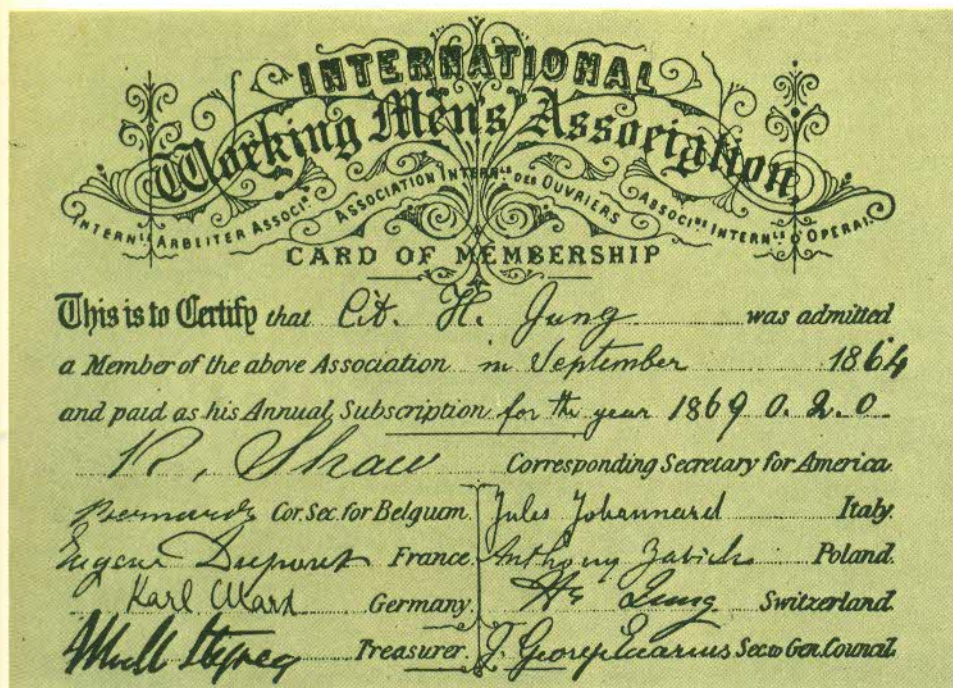 INTERNATIONAL
Working Men's Association
INTERNLE ARBEITER ASSOCIN ASSOCIATION INTERNLE DES OUVRIERS ASSOCINE INTERNLE D'OPERAI
CARD OF MEMBERSHIP
This is to Certify that Cit. H. Jung was admitted
a Member of the above Association in September 1864
and paid as his Annual Subscription for the year 1869 0. 2. 0
R. Shaw Corresponding Secretary for America.
Bernard Cor. Sec. for Belgium. Jules Johannard Italy.
Eugene Dupont France. Anthony Zabicki Poland.
Karl Marx Germany. H. Jung Switzerland.
Treasurer. J. George Eccarius Sec to Gen. Council.